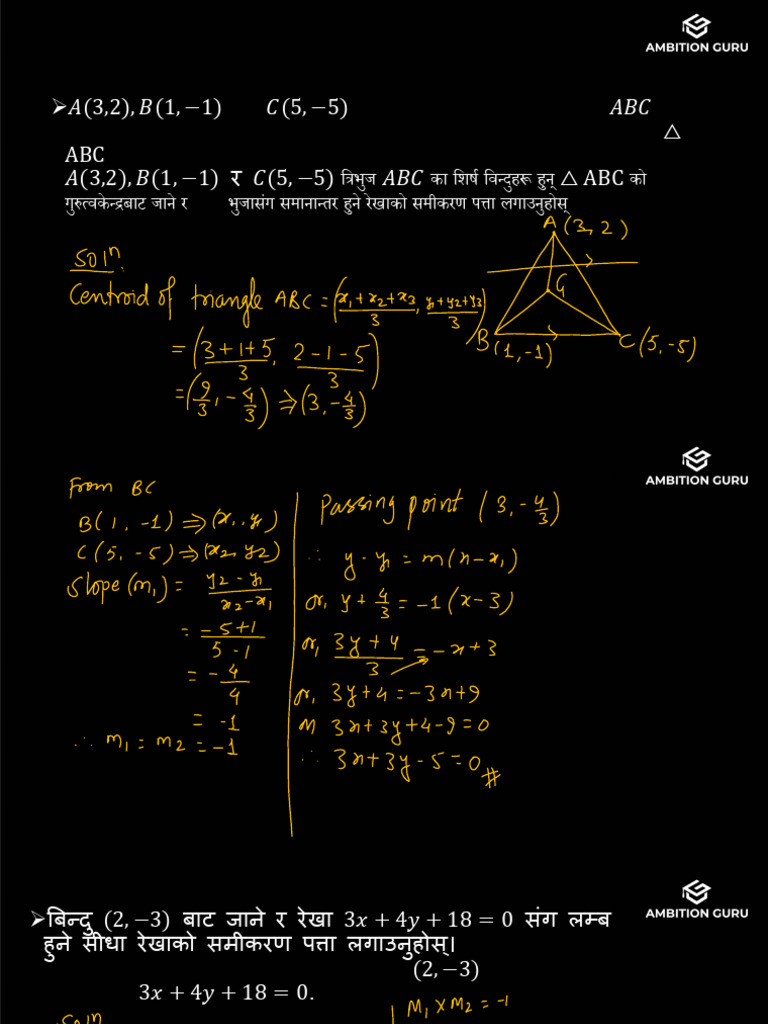 AMBITION GURU
➢A(3,2), B(1,−1) C(5,−5) ABC
△
ABC
A(3,2), B(1,−1) र C(5,−5) त्रिभुज ABC का शिर्ष विन्दुहरू हुन् △ ABC को
गुरुत्वकेन्द्रबाट जाने र भुजासंग समानान्तर हुने रेखाको समीकरण पत्ता लगाउनुहोस्
A(3, 2)
Solⁿ.
G
Centroid of triangle ABC = (x₁+x₂+x₃/3, y₁+y₂+y₃/3)
B(1, -1)
C(5, -5)
= (3+1+5/3, 2-1-5/3)
= (9/3, -4/3) ⇒ (3, -4/3)
AMBITION GURU
From BC
B(1, -1) ⇒ (x₁, y₁)
C(5, -5) ⇒ (x₂, y₂)
Slope (m₁) = y₂-y₁/x₂-x₁
= -5+1/5-1
= -4/4
= -1
∴ m₁ = m₂ = -1
Passing point (3, -4/3)
∴ y-y₁ = m(x-x₁)
or, y+4/3 = -1(x-3)
or, 3y+4/3 = -x+3
or, 3y+4 = -3x+9
or 3x+3y+4-9=0
∴ 3x+3y-5=0 #
AMBITION GURU
➢बिन्दु (2,−3) बाट जाने र रेखा 3x + 4y + 18 = 0 संग लम्ब
हुने सीधा रेखाको समीकरण पत्ता लगाउनुहोस्।
(2,−3)
3x + 4y + 18 = 0.
Solⁿ
M₁ × M₂ = -1